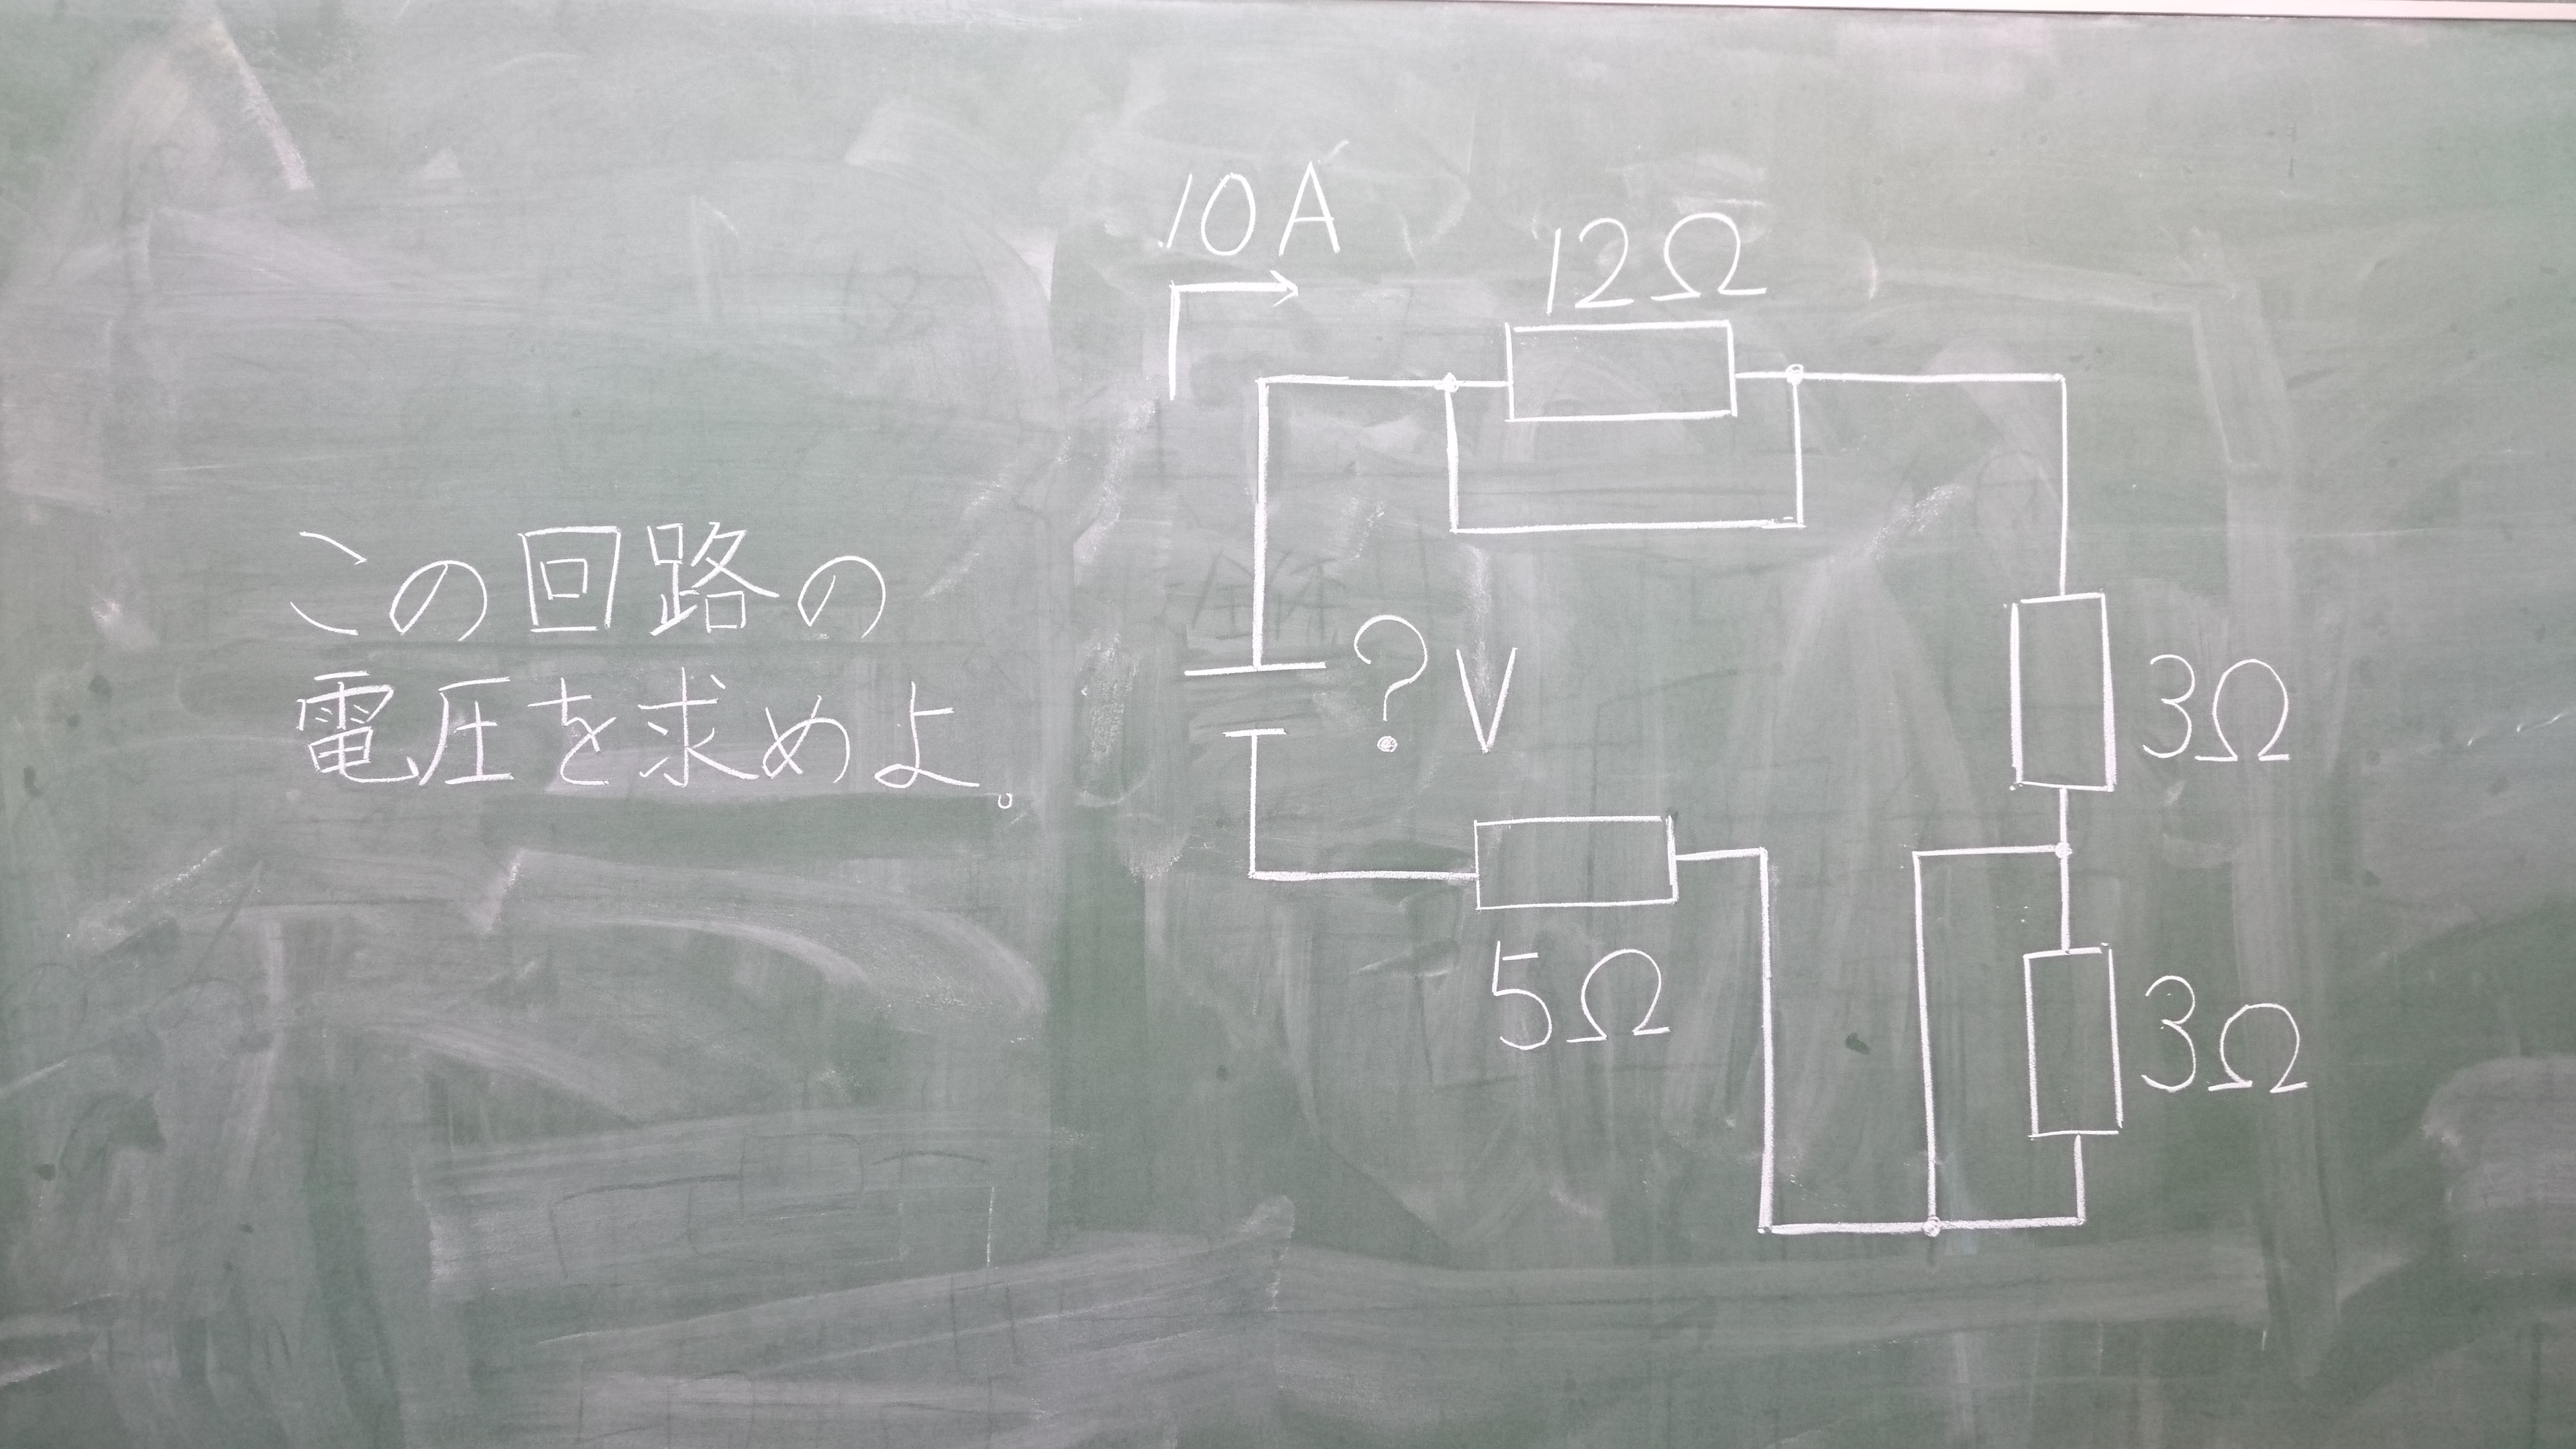 この回路の
電圧を求めよ。
10A
12Ω
?V
3Ω
5Ω
3Ω